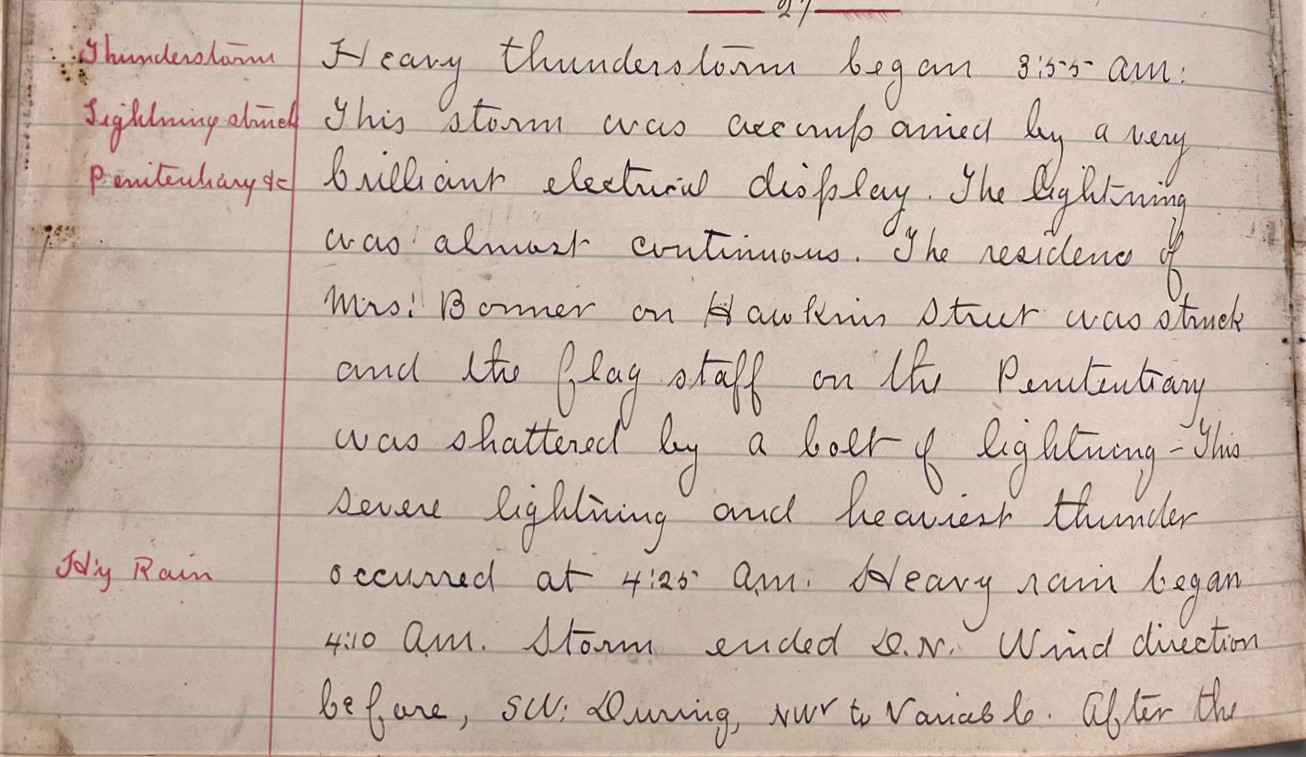 27
Thunderstorm
Heavy thunderstorm began 3:55 am:
Lightning struck
This storm was accompanied by a very
Penitentiary &c
brilliant electrical display. The lightning
was almost continuous. The residence of
Mrs. Bonner on Hawkins Street was struck
and the flag staff on the Penitentiary
was shattered by a bolt of lightning - This
severe lightning and heaviest thunder
Hy Rain
occurred at 4:25 am. Heavy rain began
4:10 am. Storm ended D.N. Wind direction
before, SW: During, NW to Variable. After the